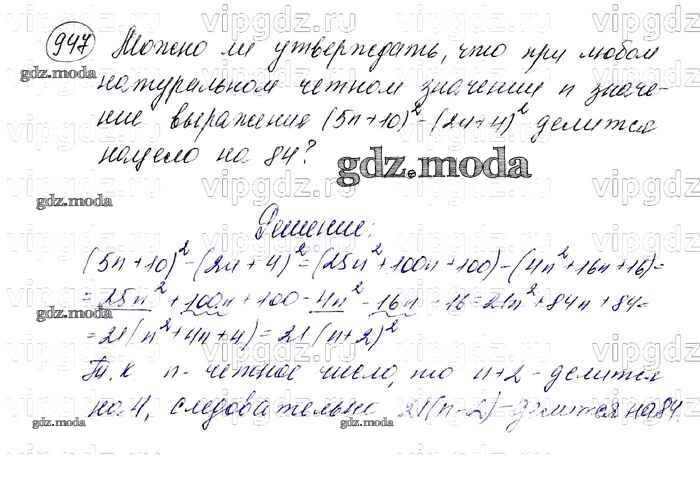 947 Можно ли утверждать, что при любом
натуральном четном значении n значе-
ние выражения (5n+10)²-(2n+4)² делится
нацело на 84?
Решение:
(5n+10)²-(2n+4)²=(25n²+100n+100)-(4n²+16n+16)=
=25n²+100n+100-4n²-16n-16=21n²+84n+84=
=21(n²+4n+4)=21(n+2)²
Т.к n-четное число, то n+2-делится
на 4, следовательно 21(n-2)-делится на 84.
gdz.moda
gdz.moda
gdz.moda
gdz.moda
gdz.moda
vipgdz.ru